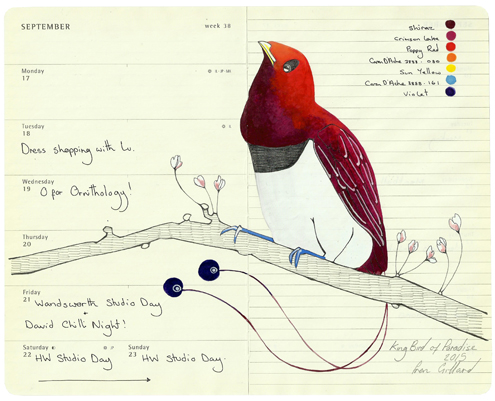 SEPTEMBER
week 38
Monday
17
Tuesday
18
Dress shopping with Lu.
Wednesday
19
O for Ornithology!
Thursday
20
Friday
21
Wandsworth Studio Day
+
David Chill Night!
Saturday
22
HW Studio Day
Sunday
23
HW Studio Day.
Shiraz
Crimson Lake
Poppy Red
Caran D'Ache 3888 - 030
Sun Yellow
Caran D'Ache 3888 - 161
Violet
King Bird of Paradise